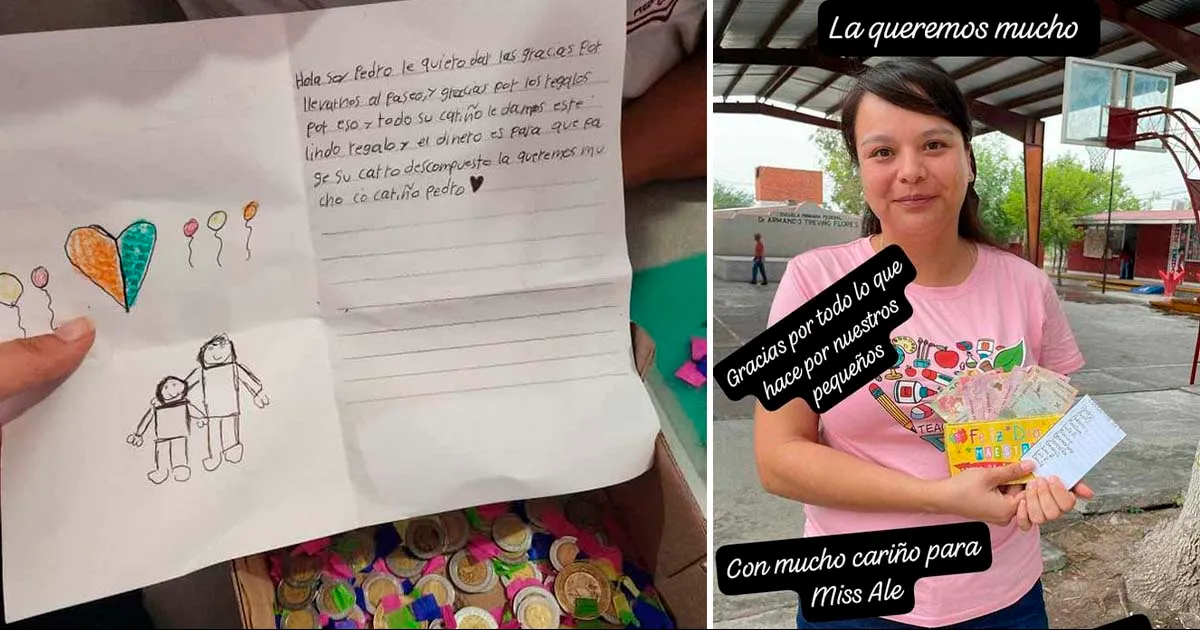 Hola soy Pedro le quiero dar las gracias por
llevarnos al paseo, y gracias por los regalos
por eso y todo su cariño le damos este
lindo regalo y el dinero es para que pa
ge su carro descompuesto la queremos mu
cho co cariño Pedro ♥
La queremos mucho
ESCUELA PRIMARIA FEDERAL
Dr ARMANDO TREVIÑO FLORES
Gracias por todo lo que
hace por nuestros
pequeños
TEAC
Feliz Día
MAESTR
Con mucho cariño para
Miss Ale